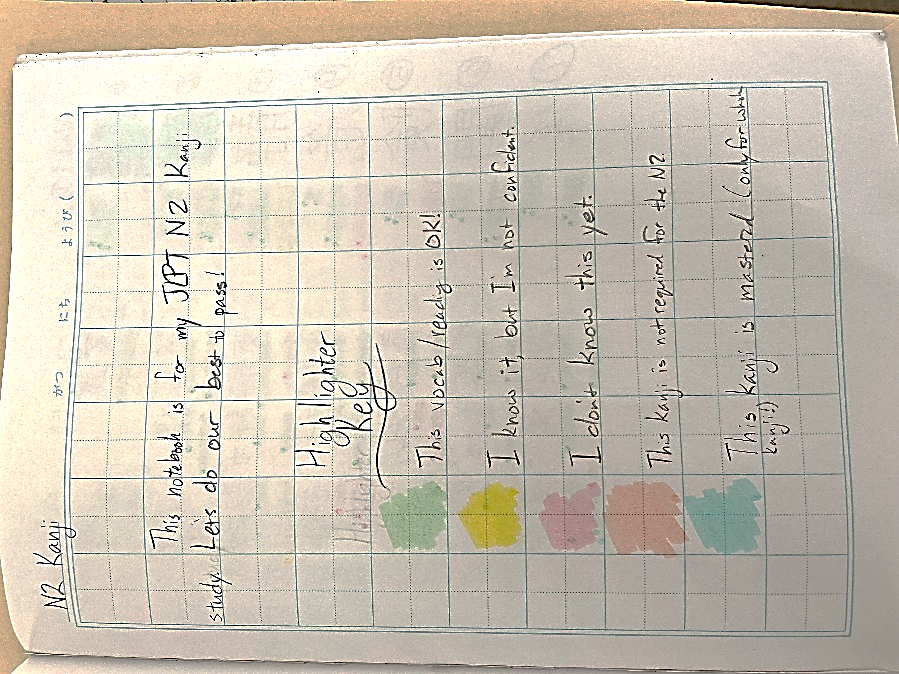 N2 Kanji
がつ にち ようび ( )
This notebook is for my JLPT N2 Kanji
study. Let's do our best to pass!
Highlighter
Key
This vocab/readig is OK!
I know it, but I'm not confident.
I don't know this yet.
This kanji is not required for the N2
This kanji is masterd (only for whole
kanji!)